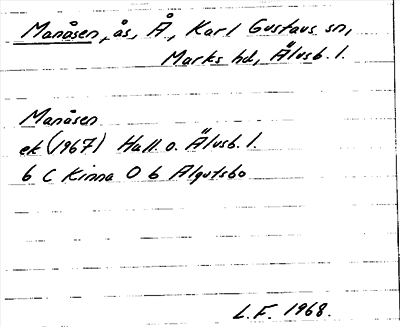 Manåsen, ås, Å, Karl Gustavs sn,
Marks hd, Älvsb. l.
Manåsen
ek (1967) Hall. o. Älvsb. l.
6 C Kinna O b Algutsbo
L.F. 1968.